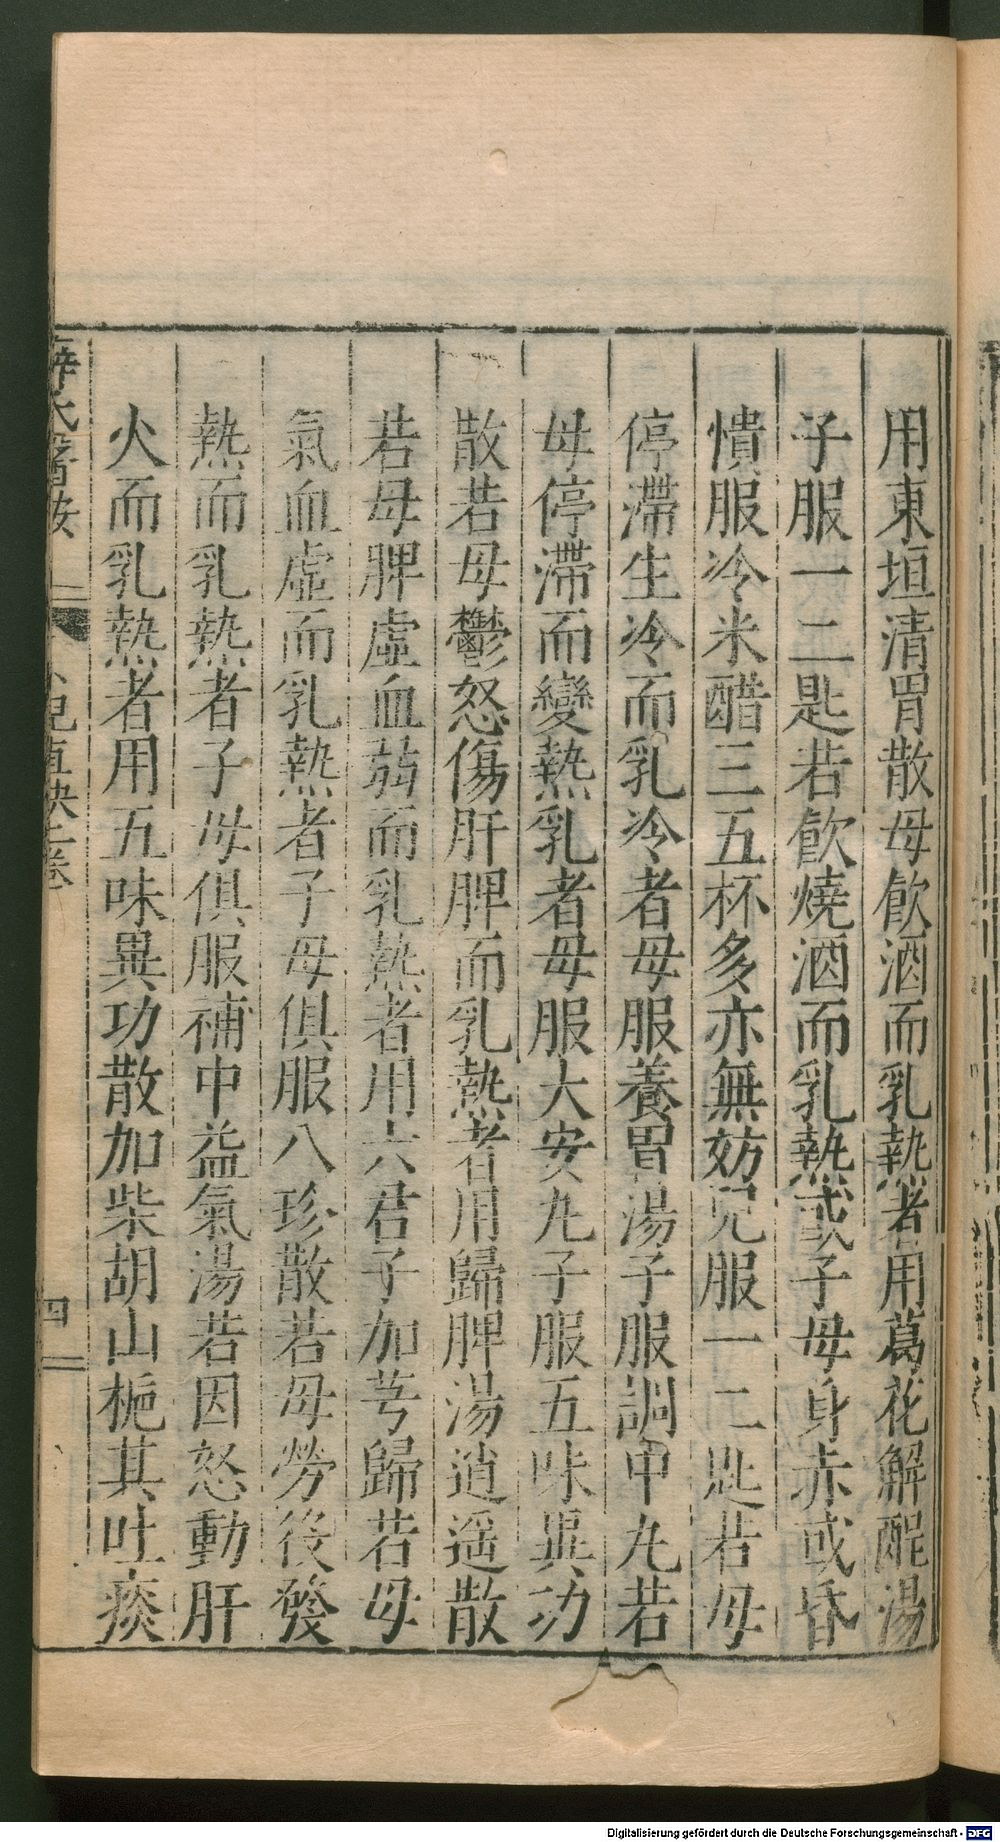 用東垣清胃散母飮酒而乳熱者用葛花解酲湯
子服一二匙若飮燒酒而乳熱或子母身赤或昏
憒服冷米醋三五杯多亦無妨兒服一二匙若母
停滯生冷而乳冷者母服養胃湯子服調中丸若
母停滯而變熱乳者母服大安丸子服五味異功
散若母鬱怒傷肝脾而乳熱者用歸脾湯逍遥散
若母脾虛血弱而乳熱者用六君子加芎歸若母
氣血虛而乳熱者子母俱服八珍散若母勞後發
熱而乳熱者子母俱服補中益氣湯若因怒動肝
火而乳熱者用五味異功散加柴胡山梔其吐痰
薛氏醫按 小兒直訣上卷 四
Digitalisierung gefördert durch die Deutsche Forschungsgemeinschaft - DFG